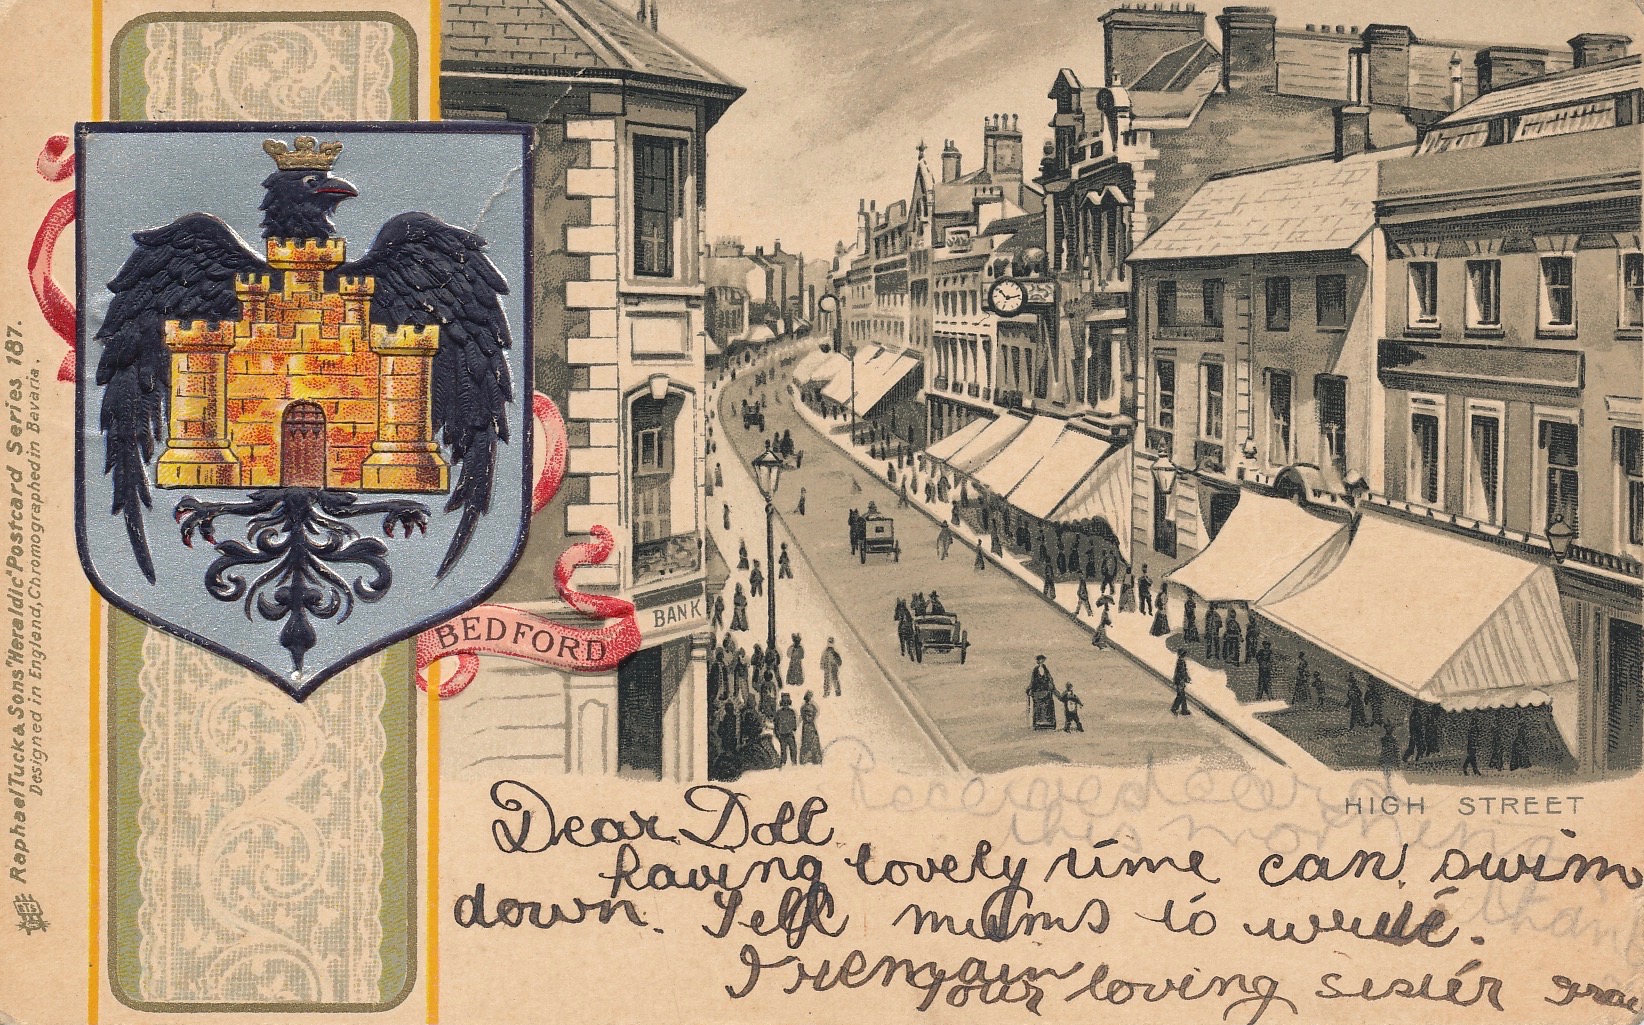 Raphael Tuck & Sons "Heraldic" Postcard Series 187.
Designed in England, Chromographed in Bavaria.
BEDFORD
BANK
HIGH STREET
Received card
this morning
Dear Doll
having lovely time can swim
down. Tell mums to write.
I remain
your loving sister